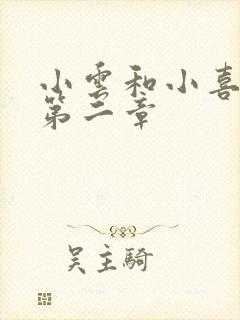 小雲和小喜
第二章
吴主騎